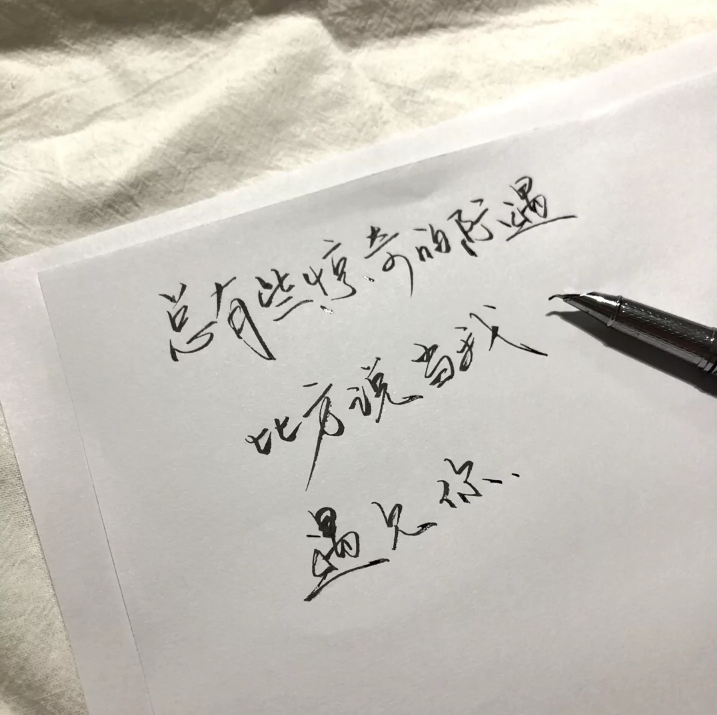 总有些惊奇的际遇
比方说当我
遇见你..